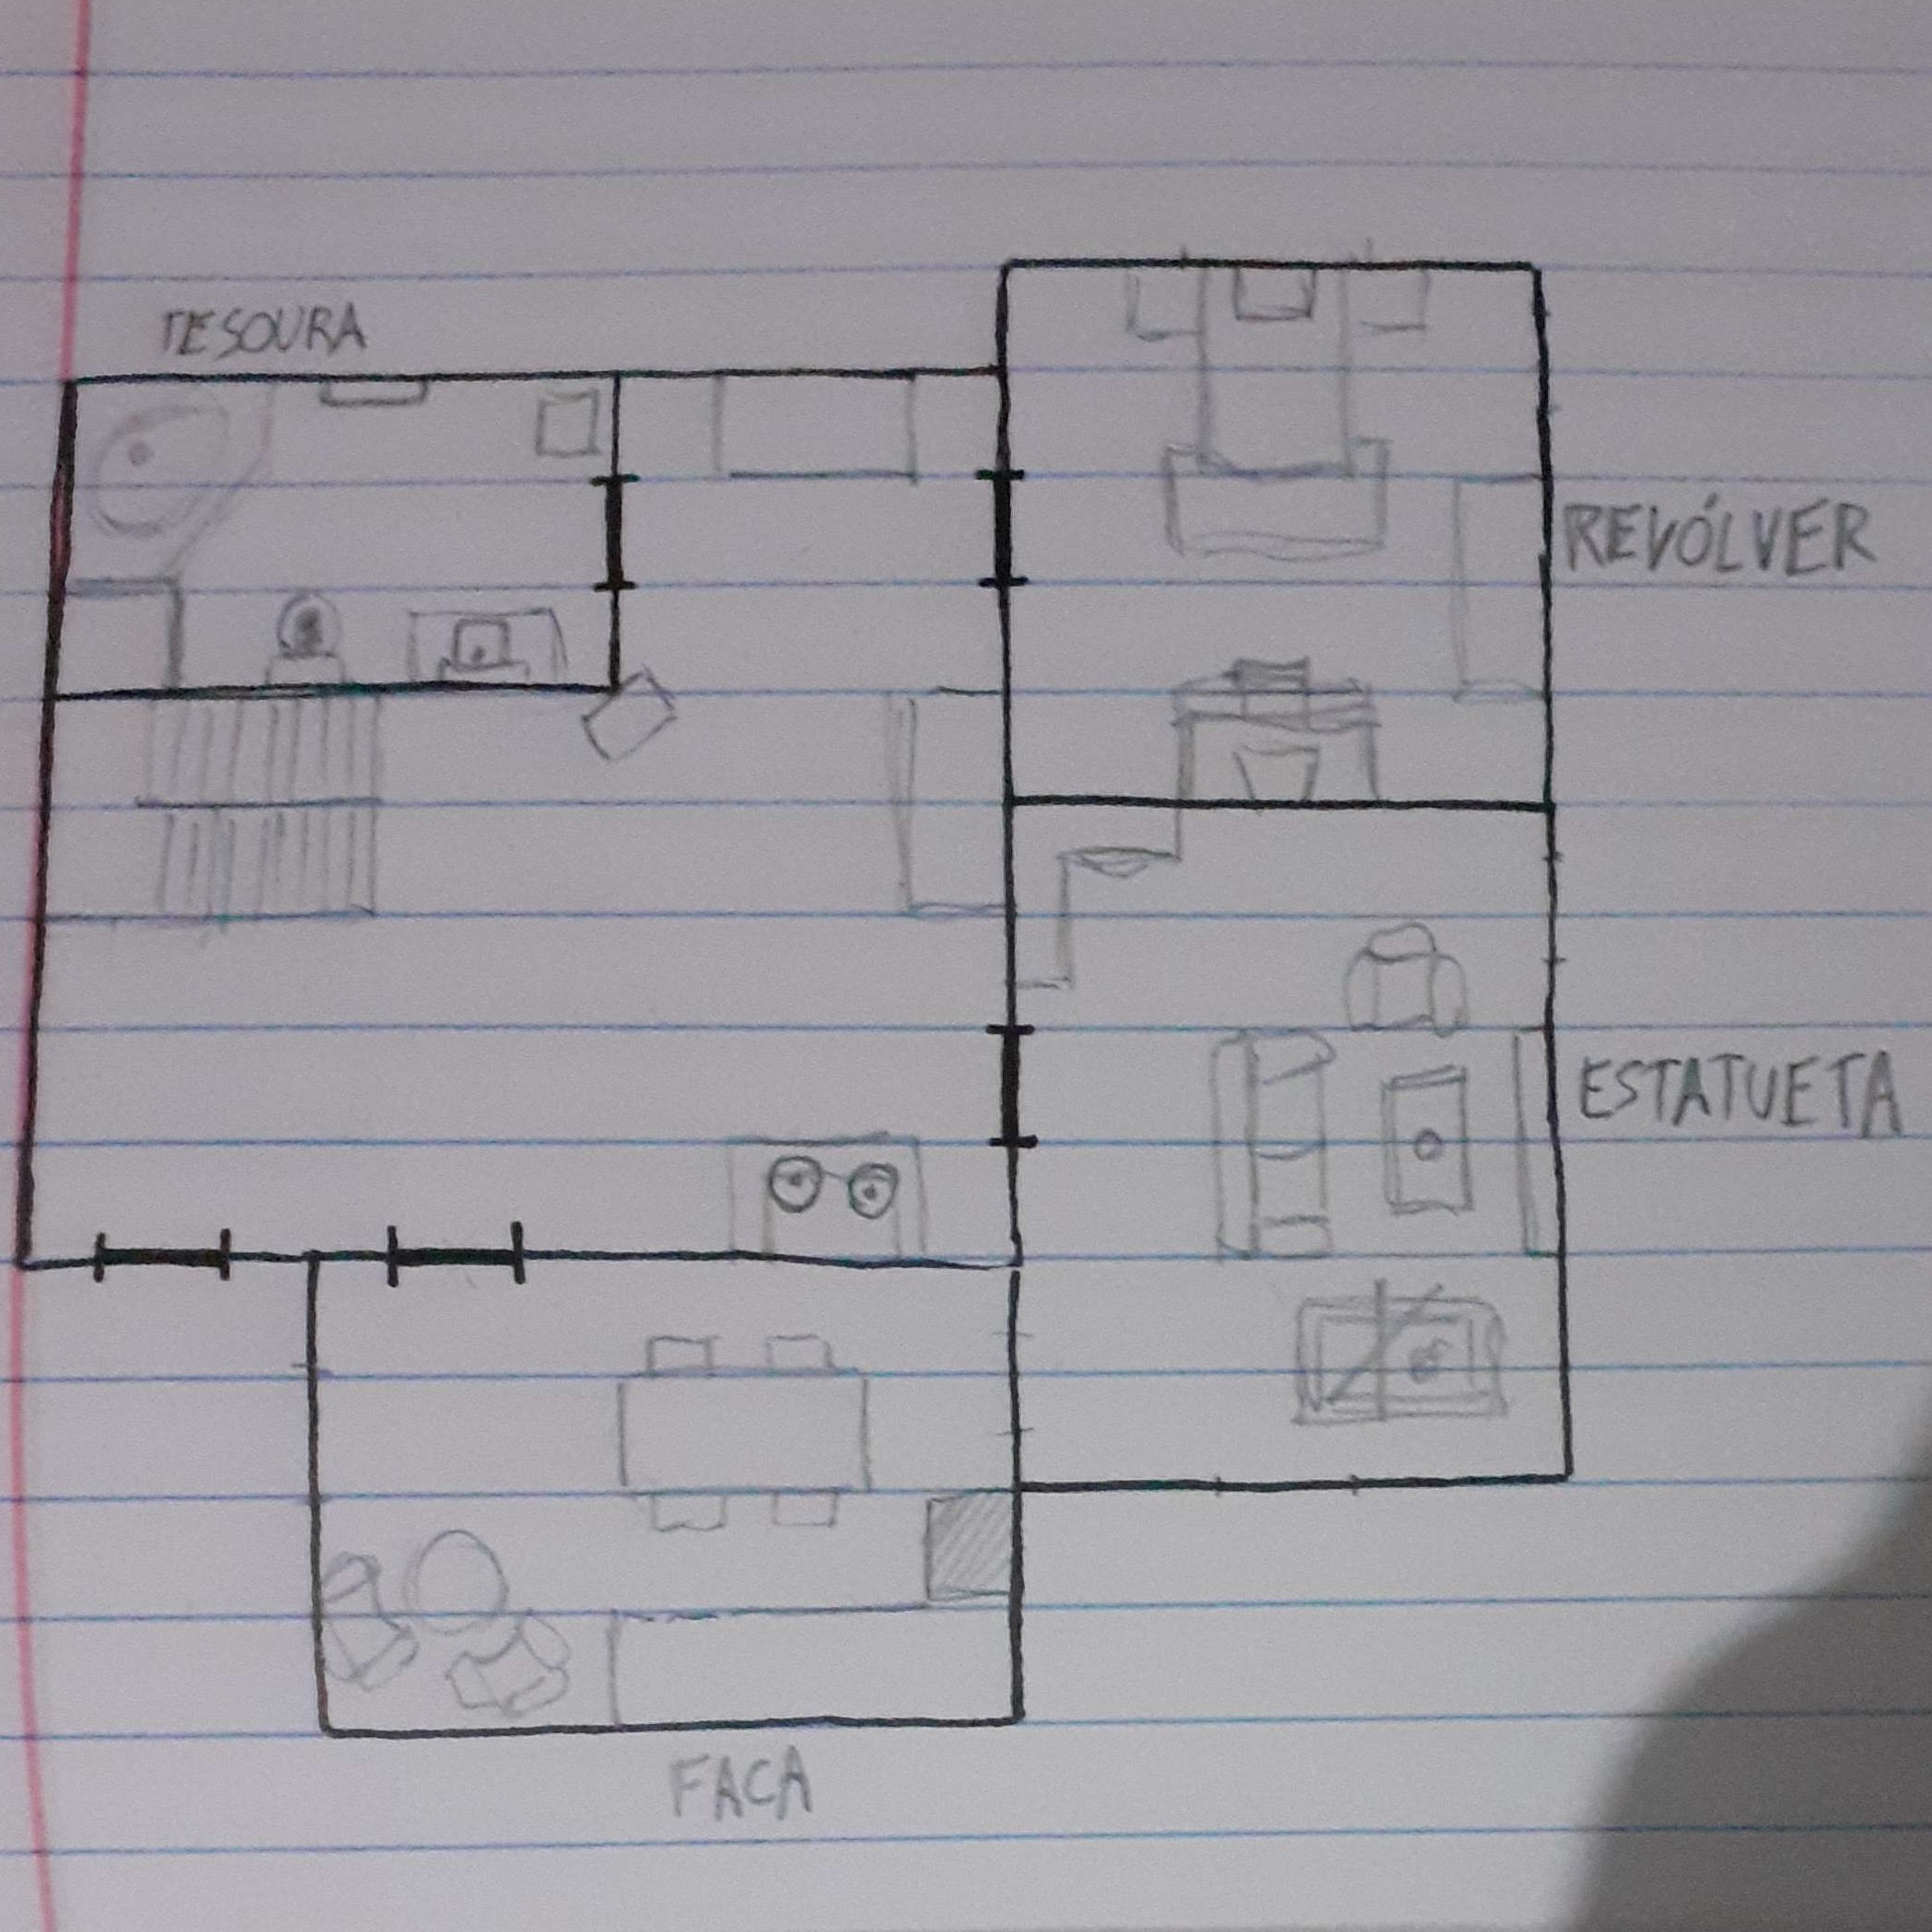 TESOURA
REVÓLVER
ESTATUETA
FACA